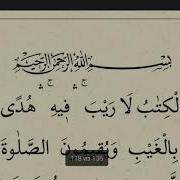 بِسْمِ اللَّهِ الرَّحْمَٰنِ الرَّحِيمِ
لْكِتَٰبُ لَا رَيْبَ ۛ فِيهِ ۛ هُدًى
بِالْغَيْبِ وَيُقِيمُونَ الصَّلَوٰةَ
118 из 136